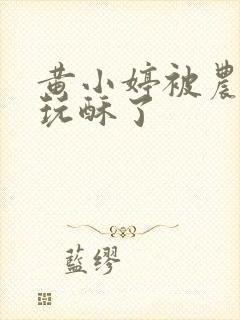 黄小婷被農
玩酥了
藍缪